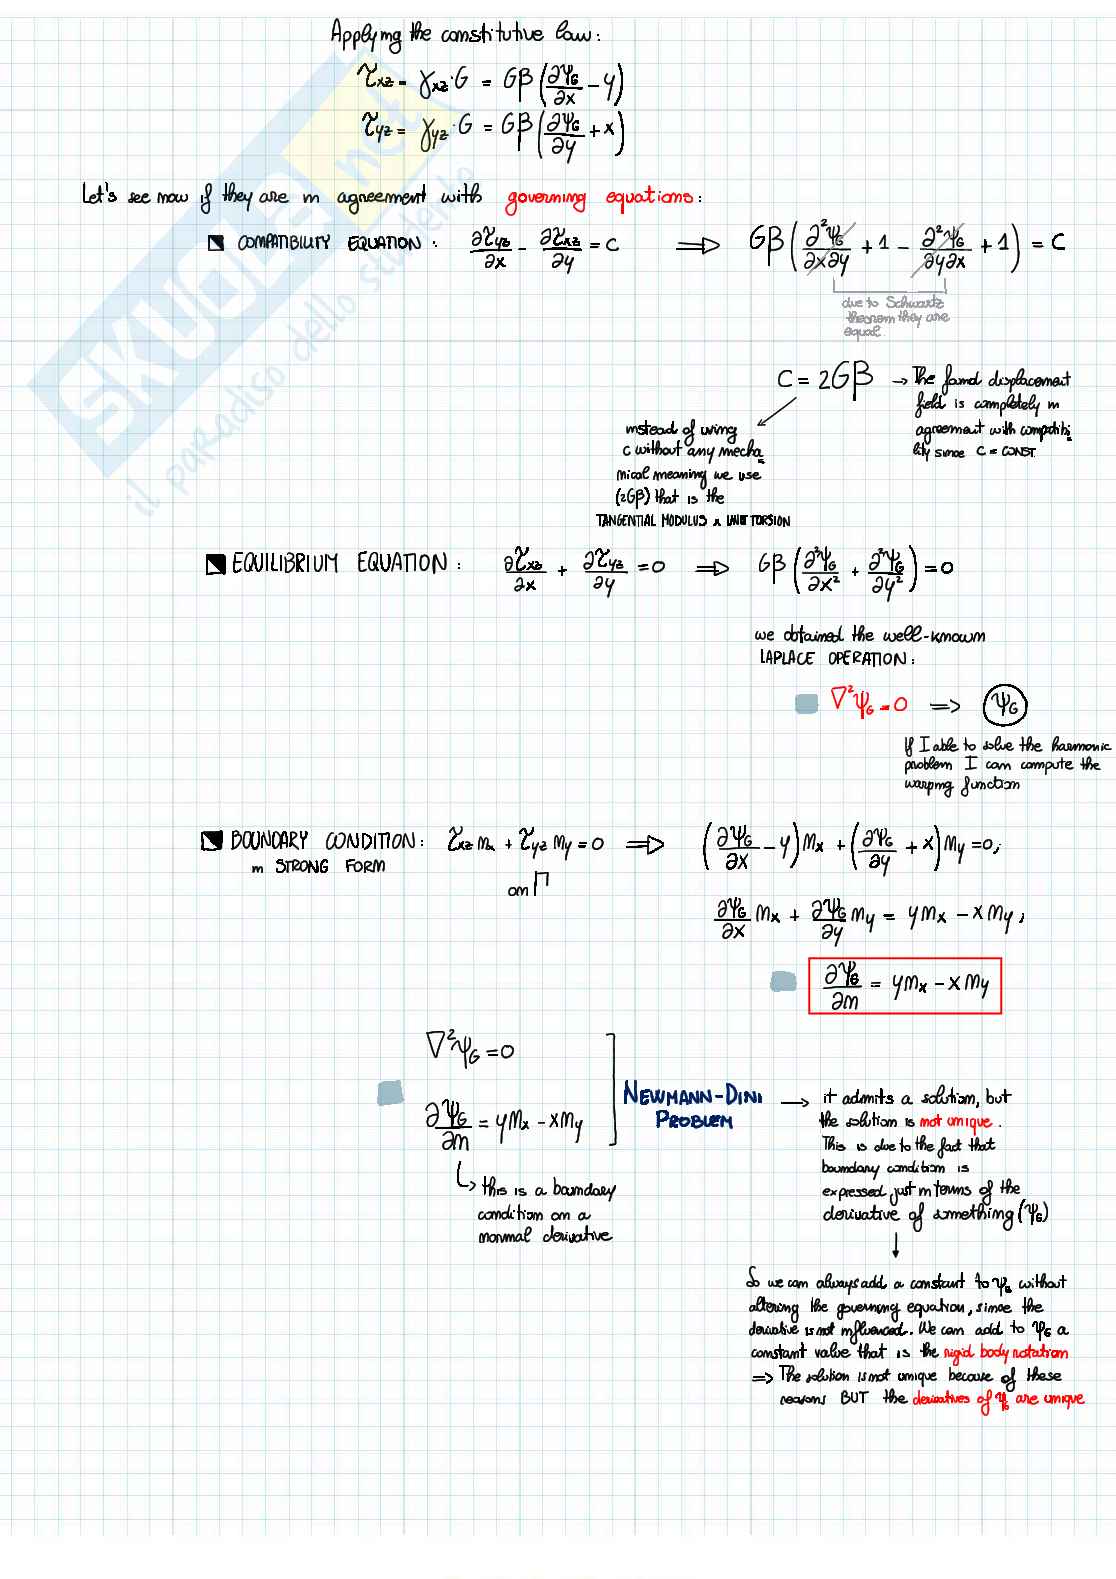 Applying the constitutive law:
τxz = γxz·G = Gβ(∂ψG/∂x − y)
τyz = γyz·G = Gβ(∂ψG/∂y + x)
Let's see now if they are in agreement with governing equations:
COMPATIBILITY EQUATION: ∂τyz/∂x − ∂τxz/∂y = C ⟹ Gβ(∂²ψG/∂x∂y + 1 − ∂²ψG/∂y∂x + 1) = C
due to Schwartz
theorem they are
equal
C = 2Gβ → The found displacement
field is completely in
agreement with compatibi
lity since C = CONST
instead of using
C without any mecha
nical meaning we use
(2Gβ) that is the
TANGENTIAL MODULUS x UNIT TORSION
EQUILIBRIUM EQUATION: ∂τxz/∂x + ∂τyz/∂y = 0 ⟹ Gβ(∂²ψG/∂x² + ∂²ψG/∂y²) = 0
we obtained the well-known
LAPLACE OPERATION:
∇²ψG = 0 ⟹ ψG
If I able to solve the harmonic
problem I can compute the
warping function
BOUNDARY CONDITION: τxz nx + τyz ny = 0 ⟹ (∂ψG/∂x − y)nx + (∂ψG/∂y + x)ny = 0;
in STRONG FORM
on Γ
∂ψG/∂x nx + ∂ψG/∂y ny = ynx − xny;
∂ψG/∂n = ynx − xny
∇²ψG = 0
∂ψG/∂n = ynx − xny
NEWMANN-DINI
PROBLEM
→ it admits a solution, but
the solution is not unique.
This is due to the fact that
boundary condition is
expressed just in terms of the
derivative of something (ψG)
this is a boundary
condition on a
normal derivative
So we can always add a constant to ψG without
altering the governing equation, since the
derivative is not influenced. We can add to ψG a
constant value that is the rigid body rotation
⟹ The solution is not unique because of these
reasons BUT the derivatives of ψG are unique
SKUOLA.net
il paradiso dello studente